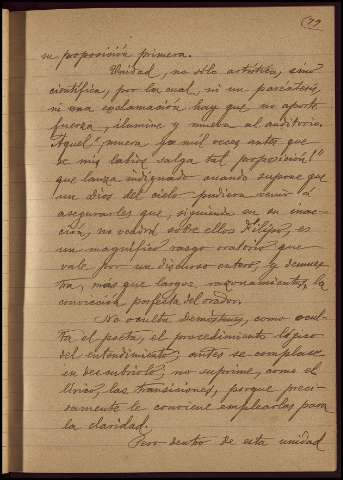 (79
su proposición primera.
Unidad, no sólo artística, sino
científica, por la cual, ni un paréntesis,
ni una exclamación hay que no aporte
fuerza, ilumine y mueva al auditorio.
Aquel "¡muera yo mil veces antes que
de mis labios salga tal proposición!"
que lanza indignado cuando supone que
un dios del cielo pudiera venir á
asegurarles que, siguiendo en su inac-
ción, no vendrá sobre ellos Filipo, es
un magnífico rasgo oratorio que
vale por un discurso entero, y demues-
tra, más que largos razonamientos, la
convicción profunda del orador.
No oculta Demóstenes, como ocul-
ta el poeta, el procedimiento lógico
del entendimiento; antes se complace
en descubrirlo; no suprime, como el
lírico, las transiciones, porque preci-
samente le conviene emplearlas para
la claridad.
Pero dentro de esta unidad